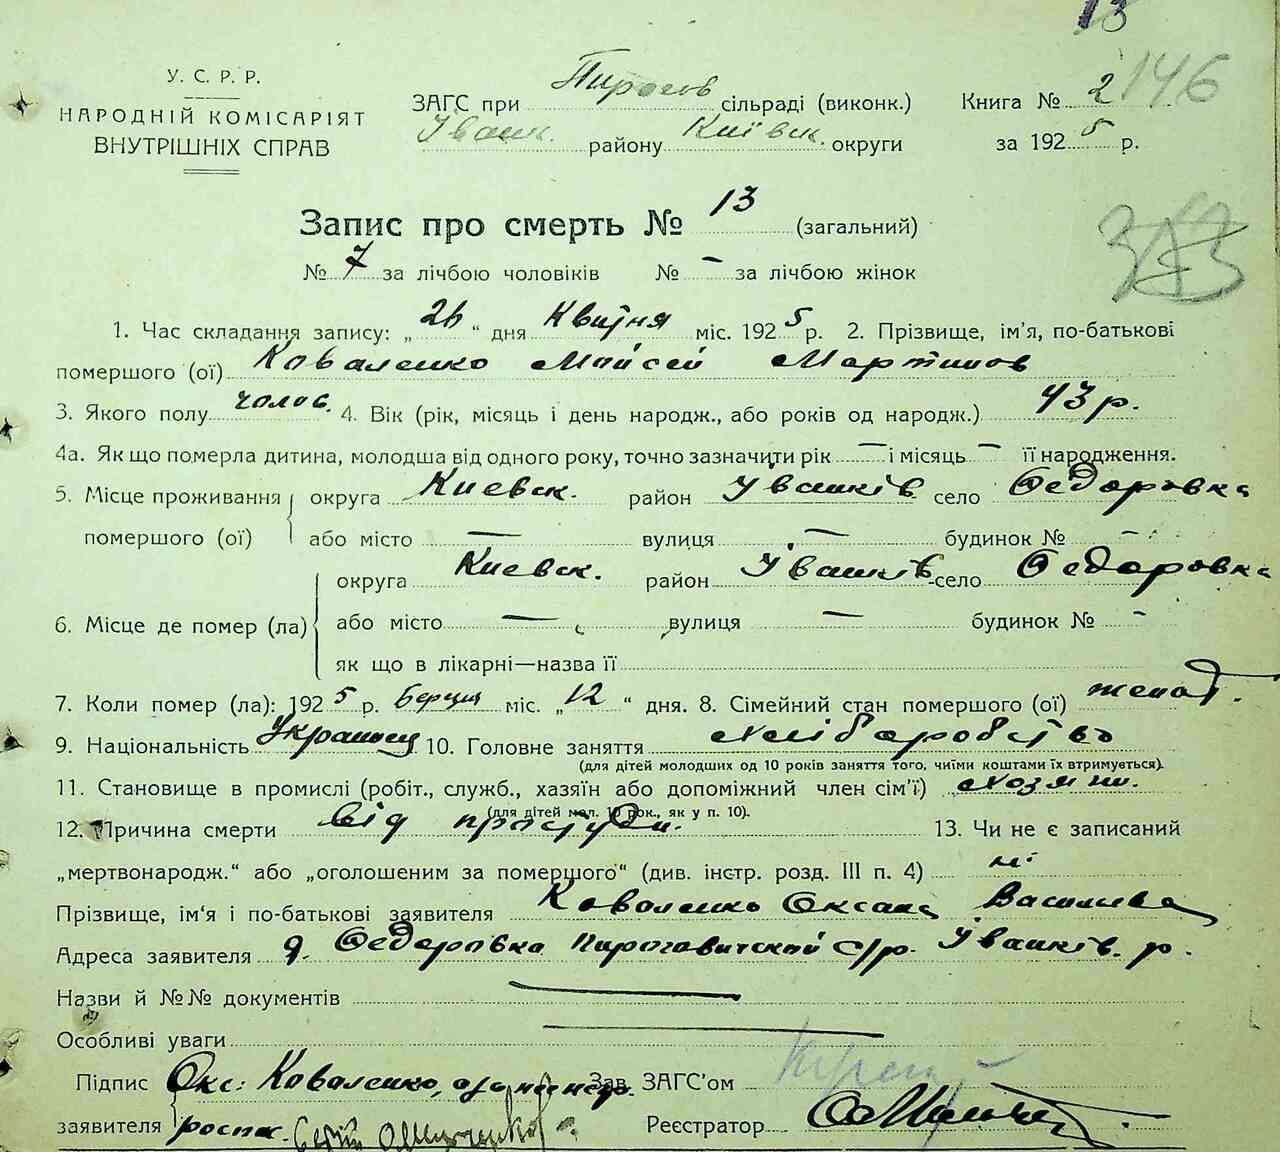 13
146
У. С. Р. Р.
НАРОДНІЙ КОМІСАРІЯТ
ВНУТРІШНІХ СПРАВ
ЗАГС при Пирогов сільраді (виконк.)
Іванк. району Київск. округи
Книга № 2
за 1925 р.
Запис про смерть № 13 (загальний)
№ 7 за лічбою чоловіків № — за лічбою жінок
1. Час складання запису: „26“ дня Квітня міс. 1925 р. 2. Прізвище, ім'я, по-батькові
помершого (ої) Коваленко Мойсей Мартинов
3. Якого полу чолов. 4. Вік (рік, місяць і день народж., або років од народж.) 43 р.
4а. Як що померла дитина, молодша від одного року, точно зазначити рік — і місяць — її народження.
5. Місце проживання помершого (ої) округа Киевск. район Іванків село Федоровка
або місто — вулиця — будинок № —
6. Місце де помер (ла) округа Киевск. район Іванків село Федоровка
або місто — вулиця — будинок № —
як що в лікарні—назва її
7. Коли помер (ла): 1925 р. берція міс. „12“ дня. 8. Сімейний стан помершого (ої) женат.
9. Національність Украинец 10. Головне заняття хліборобство
(для дітей молодших од 10 років заняття того, чиїми коштами їх втримується).
11. Становище в промислі (робіт., служб., хазяїн або допоміжний член сім'ї) хозяин.
(для дітей мол. 10 рок., як у п. 10).
12. Причина смерти від простуди. 13. Чи не є записаний
„мертвонародж.“ або „оголошеним за помершого“ (див. інстр. розд. III п. 4) ні
Прізвище, ім'я і по-батькові заявителя Коваленко Оксана Василева
Адреса заявителя д. Федоровка Пироговичской с/р. Іванків. р.
Назви й №№ документів —
Особливі уваги —
Підпис заявителя Окс: Коваленко,
Зав. ЗАГС'ом
Реєстратор